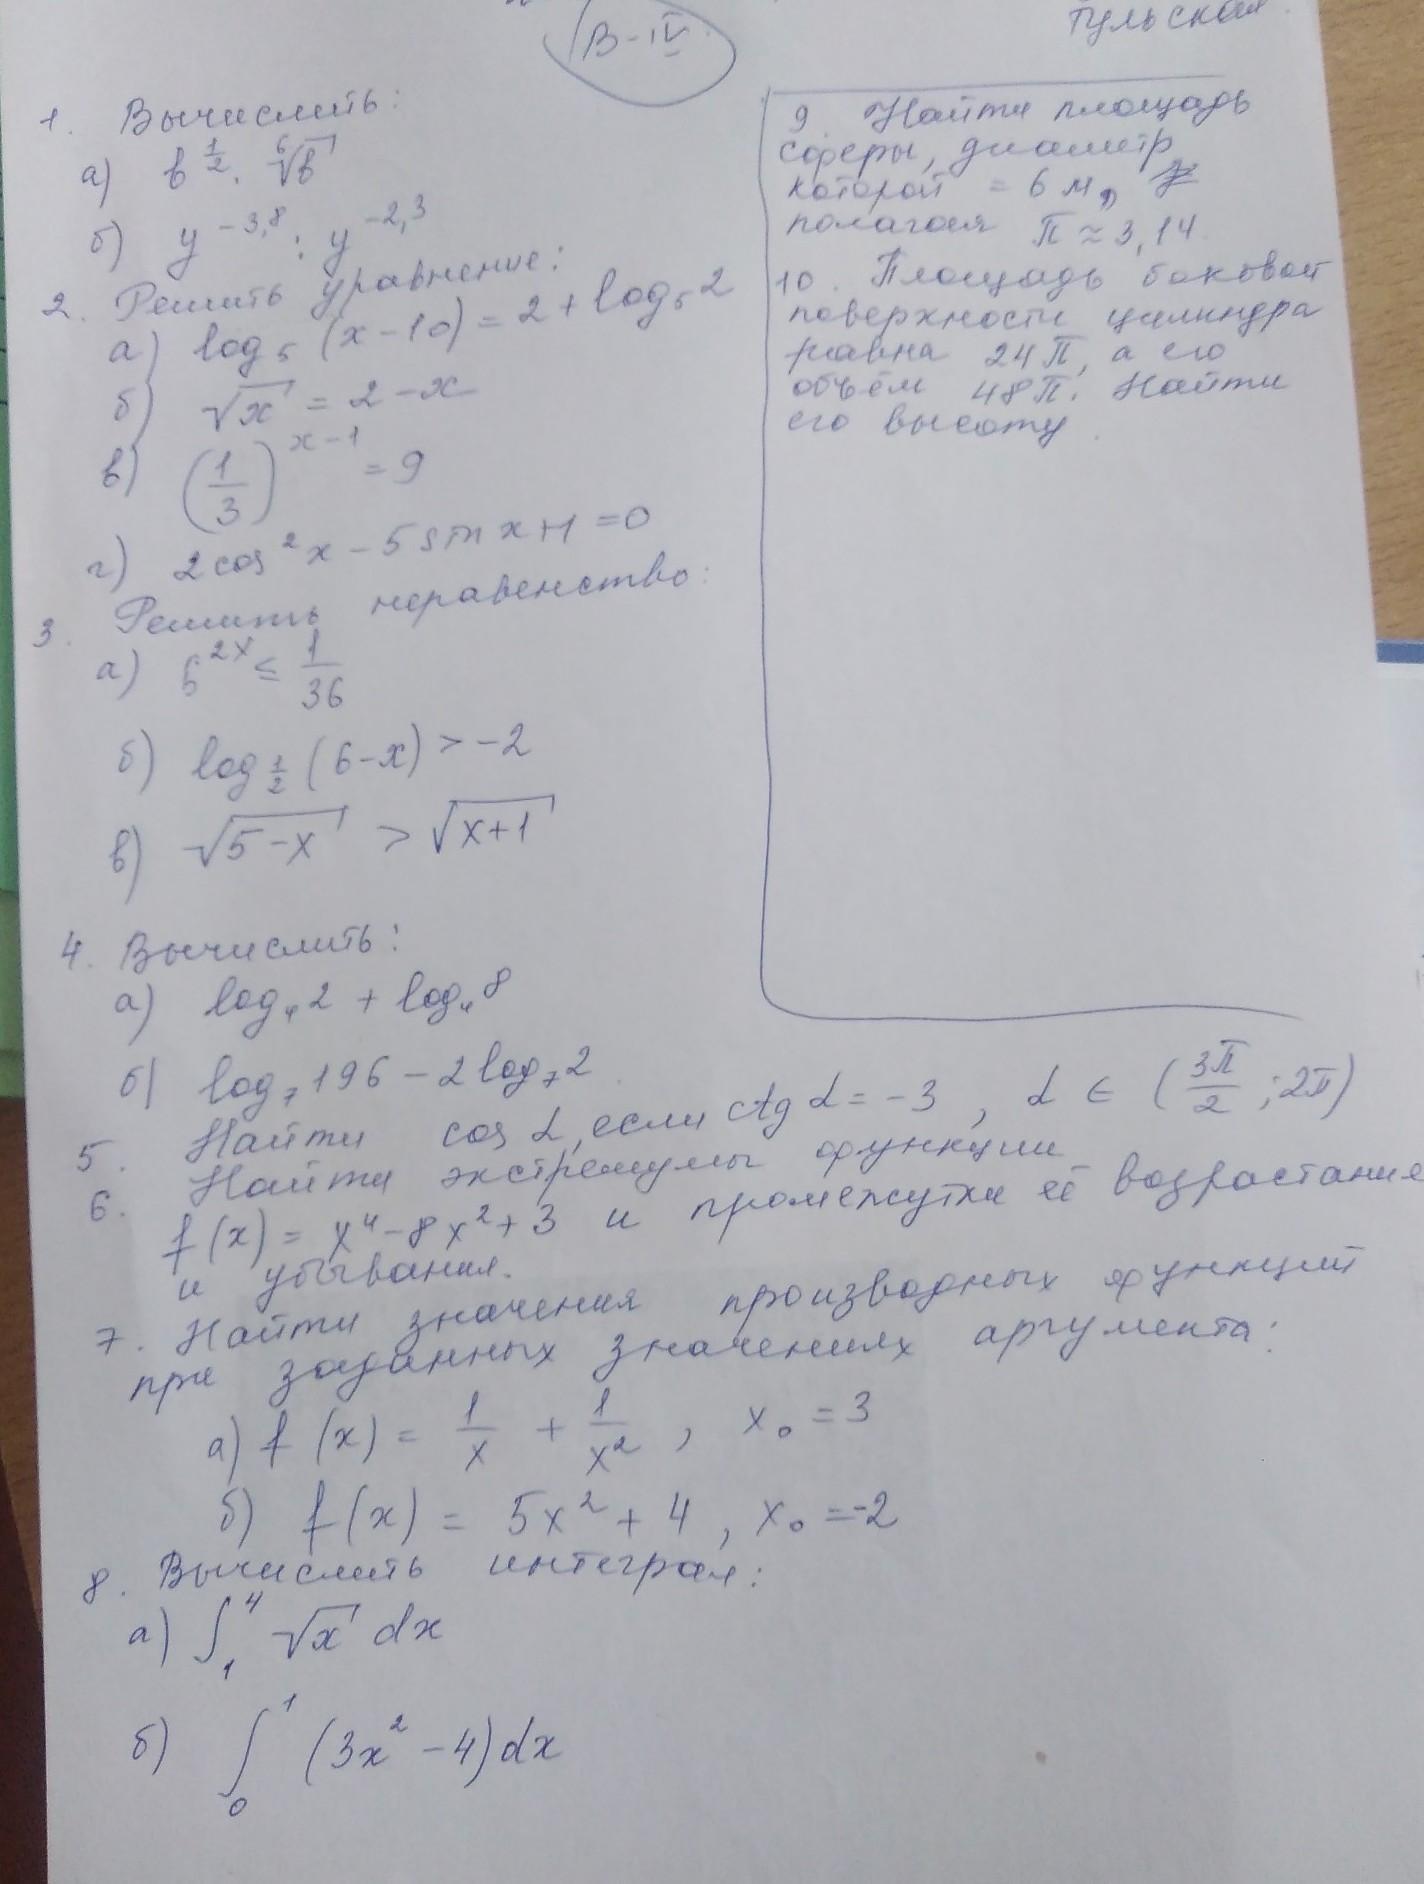 В-IV
Тульская
1. Вычислить:
а) b^{1/2} · ⁶√b
б) y^{-3,8} : y^{-2,3}
2. Решить уравнение:
а) log₅ (x-10) = 2 + log₅ 2
б) √x = 2 - x
в) (1/3)^{x-1} = 9
г) 2cos²x - 5sin x + 1 = 0
3. Решить неравенство:
а) 6^{2x} ≤ 1/36
б) log_{1/2} (6-x) > -2
в) √(5-x) > √(x+1)
4. Вычислить:
а) log₄ 2 + log₄ 8
б) log₇ 196 - 2log₇ 2
5. Найти cos α, если ctg α = -3, α ∈ (3π/2; 2π)
6. Найти экстремумы функции
f(x) = x⁴ - 8x² + 3 и промежутки её возрастания
и убывания.
7. Найти значения производных функций
при заданных значениях аргумента:
а) f(x) = 1/x + 1/x², x₀ = 3
б) f(x) = 5x² + 4, x₀ = -2
8. Вычислить интеграл:
а) ∫₁⁴ √x dx
б) ∫₀¹ (3x² - 4) dx
9. Найти площадь
сферы, диаметр
которой = 6 м,
полагая π ≈ 3,14.
10. Площадь боковой
поверхности цилиндра
равна 24π, а его
объём 48π. Найти
его высоту.